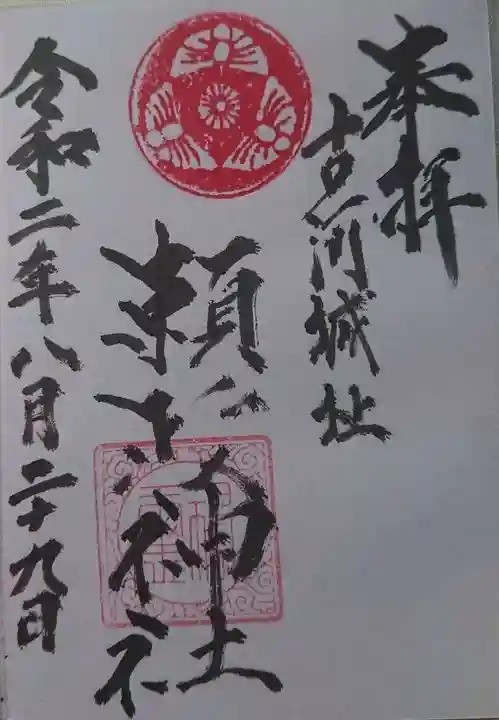 奉拝
古河城址
頼政神社
令和二年八月二十九日